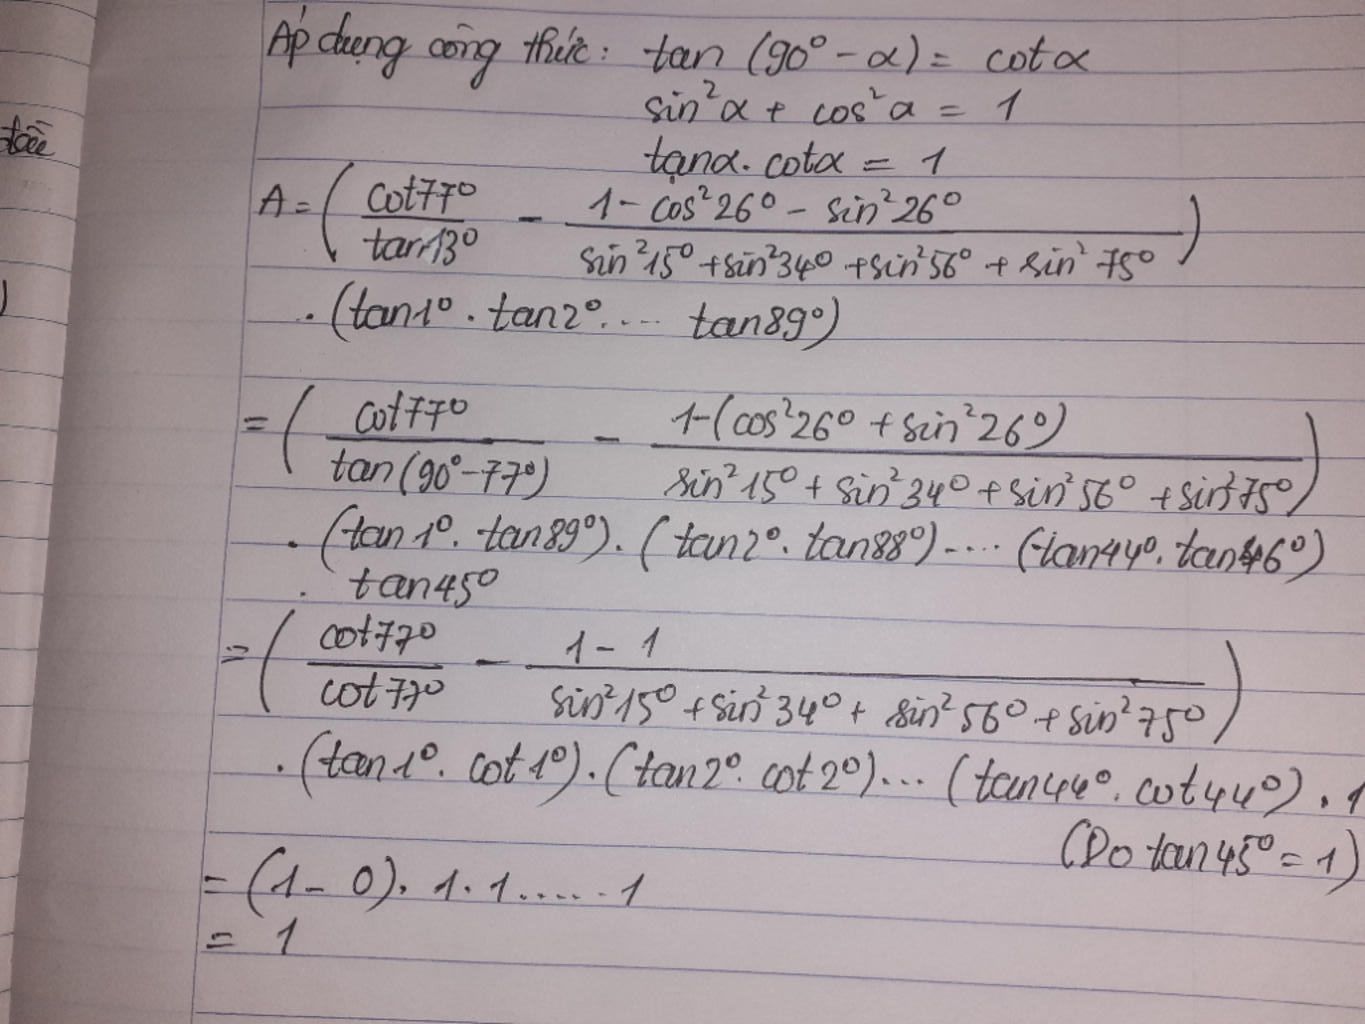 Áp dụng công thức: tan (90° - α) = cot α
sin²α + cos²α = 1
tanα. cotα = 1
A = ( cot77° / tan13° - (1 - cos²26° - sin²26°) / (sin²15° + sin²34° + sin²56° + sin²75°) )
. (tan1° . tan2° .... tan89°)
= ( cot77° / tan(90° - 77°) - (1 - (cos²26° + sin²26°)) / (sin²15° + sin²34° + sin²56° + sin²75°) )
. (tan1° . tan89°) . (tan2° . tan88°) .... (tan44° . tan46°)
. tan45°
= ( cot77° / cot77° - (1 - 1) / (sin²15° + sin²34° + sin²56° + sin²75°) )
. (tan1° . cot1°) . (tan2° . cot2°) ... (tan44° . cot44°) . 1
(Do tan45° = 1)
= (1 - 0) . 1 . 1 ...... 1
= 1